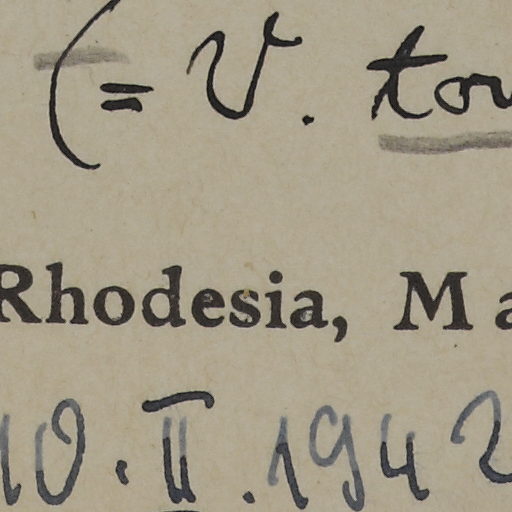 (= V. tou
Rhodesia, Ma
10. II. 1942